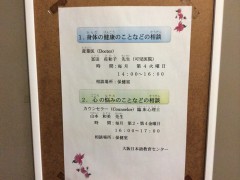 1．身体の健康のことなどの相談
産業医（Doctor）
先生（町田医院）
時　間：毎月　第4火曜日
14:00～16:00
相談場所：保健室
2．心の悩みのことなどの相談
カウンセラー（Counselor）臨床心理士
山本　和美　先生
時　間：毎月　第2・第4金曜日
16:00～17:00
相談場所：保健室
大阪日本語教育センター